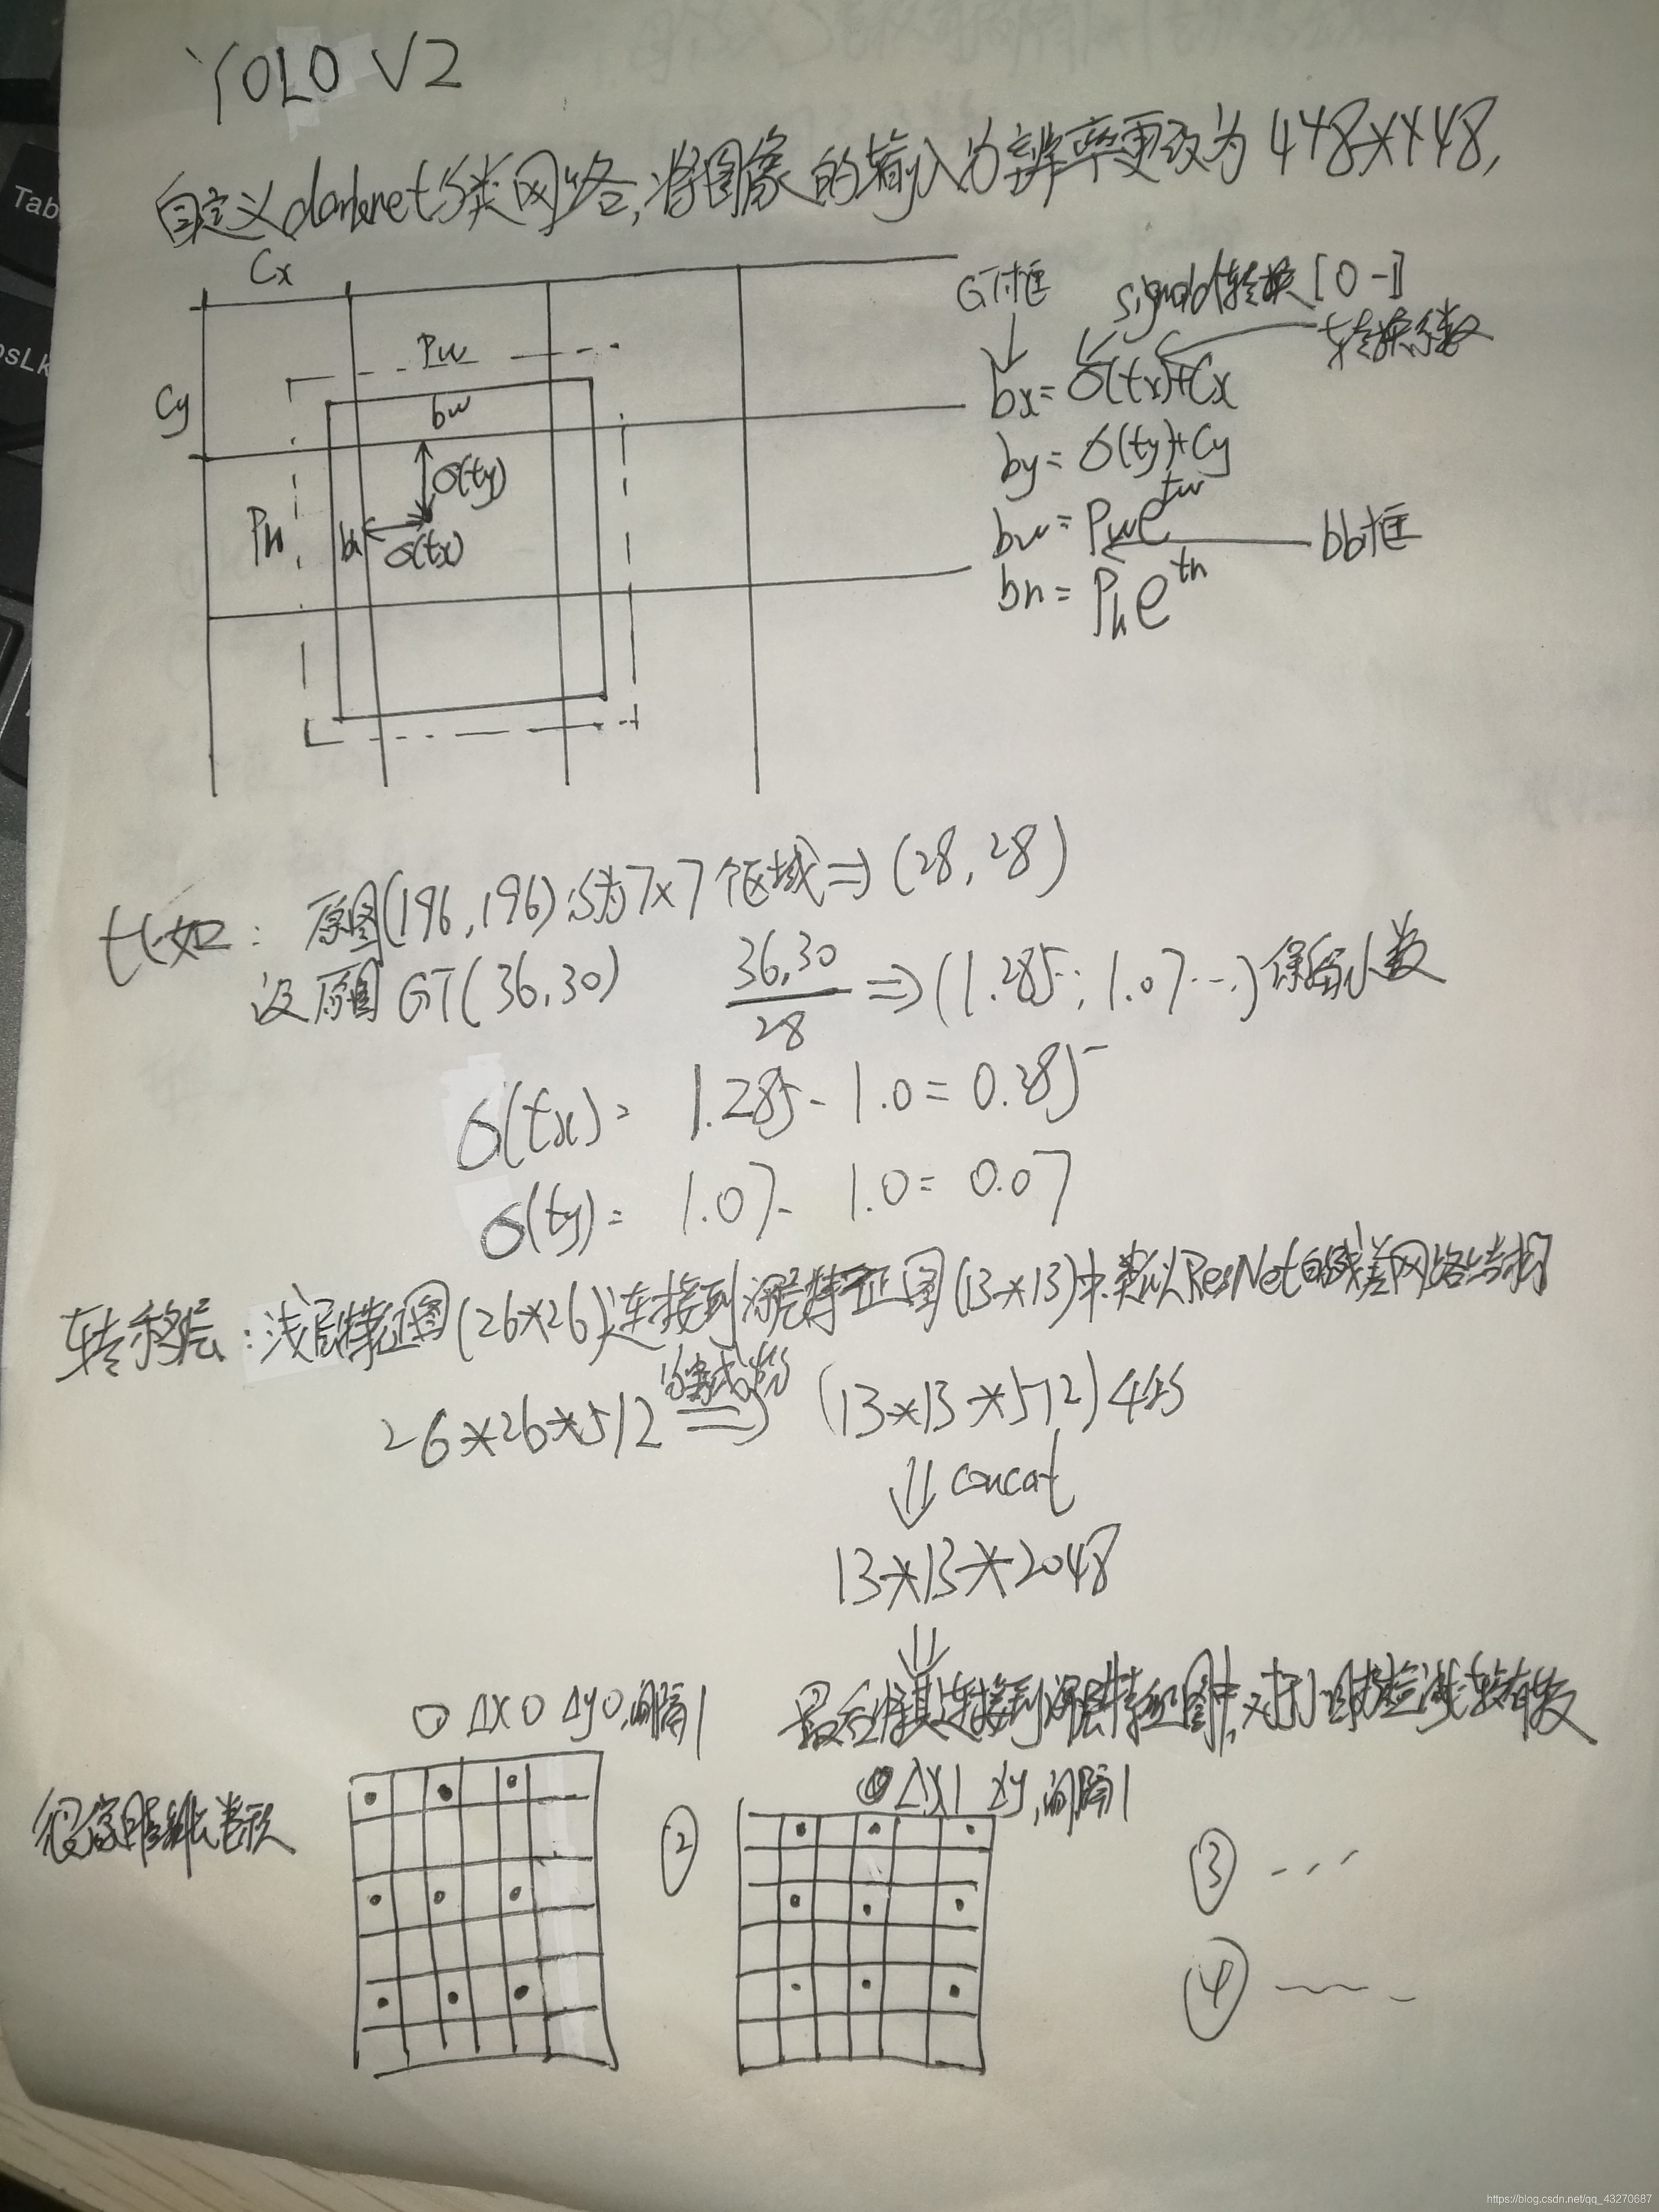 YOLO V2
自定义darknet分类网络,将图像的输入分辨率更改为448*448,
Cx
Cy
Pw
bw
σ(ty)
Ph
bh
σ(tx)
GT框
sigmoid转换[0-1]
转换系数
bx=σ(tx)+Cx
by=σ(ty)+Cy
bw=Pwe^tw
bh=Phe^th
bb框
比如: 原图(196,196)分为7x7个区域⇒(28,28)
设原图GT(36,30) 36,30/28 ⇒(1.285; 1.07…)保留小数
σ(tx)= 1.285-1.0=0.285
σ(ty)= 1.07-1.0=0.07
转移层:浅层特征图(26*26)连接到深层特征图(13*13)中,类似ResNet的残差网络结构
26*26*512 ⇒ (13*13*512)4份
⇓ concat
13*13*2048
⇓
最后将其连接到深层特征图中,对小目标检测较有效
Δx0 Δy0,间隔1
Δx1 Δy,间隔1
很像
卷积
②
③ ---
④ ---
Tab
psLk
https://blog.csdn.net/qq_43270687